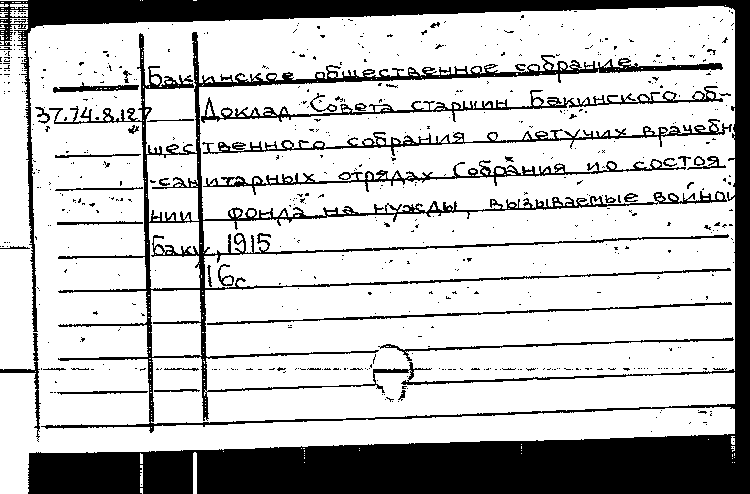 Бакинское общественное собрание.
37.74.8.127 Доклад Совета старшин Бакинского об-
щественного собрания о летучих врачебн
-санитарных отрядах Собрания и о состоя-
нии фонда на нужды, вызываемые войной
Баку, 1915
16с